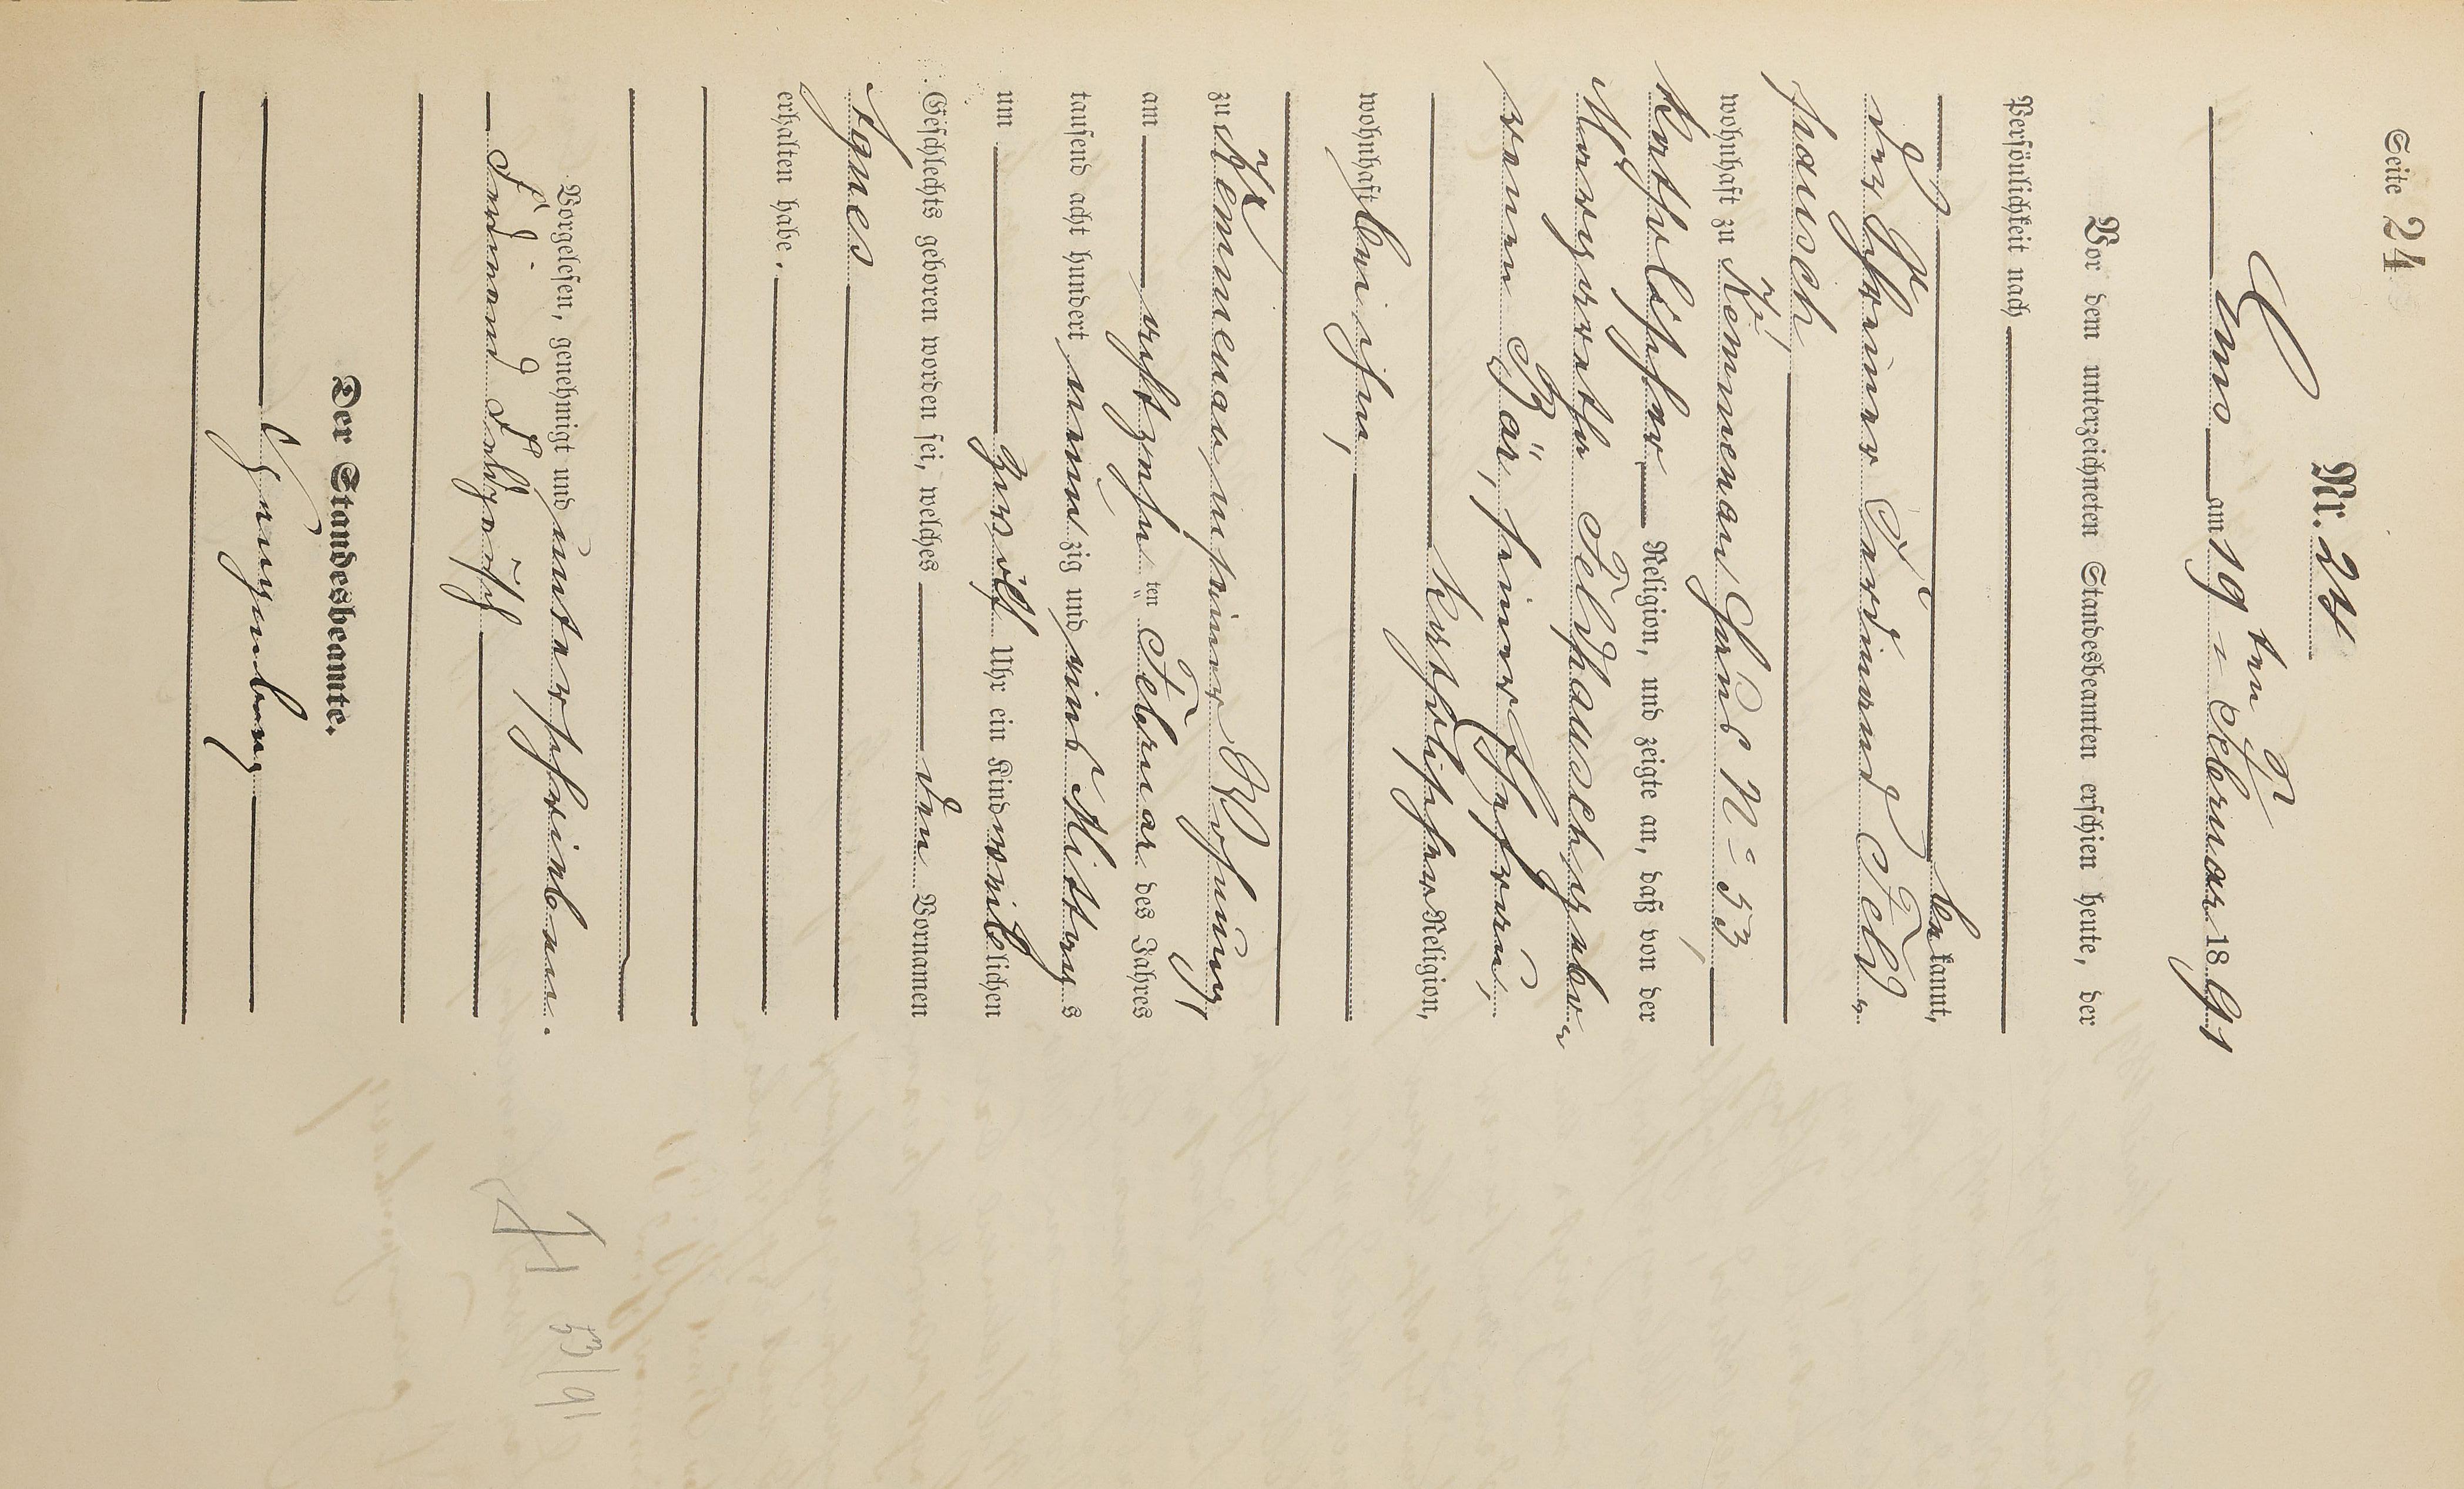 Seite 24
Nr. 24
Ems am 19 ten Februar 1891
Vor dem unterzeichneten Standesbeamten erschien heute, der
Persönlichkeit nach
bekannt,
der Schreiner Ferdinand Feld-
pausch,
wohnhaft zu Kemmenau Haus No 53,
katholischer Religion, und zeigte an, daß von der
Margaretha Feldpausch, gebo-
renen Bär, seiner Ehefrau,
katholischer Religion,
wohnhaft bei ihm,
zu Kemmenau in seiner Wohnung,
am achtzehn ten Februar des Jahres
tausend acht hundert neunzig und eins Mittags
um zwölf Uhr ein Kind weiblichen
Geschlechts geboren worden sei, welches den Vornamen
Agnes
erhalten habe.
Vorgelesen, genehmigt und unterschrieben.
Ferdinand Feldpausch
Der Standesbeamte.
53/91